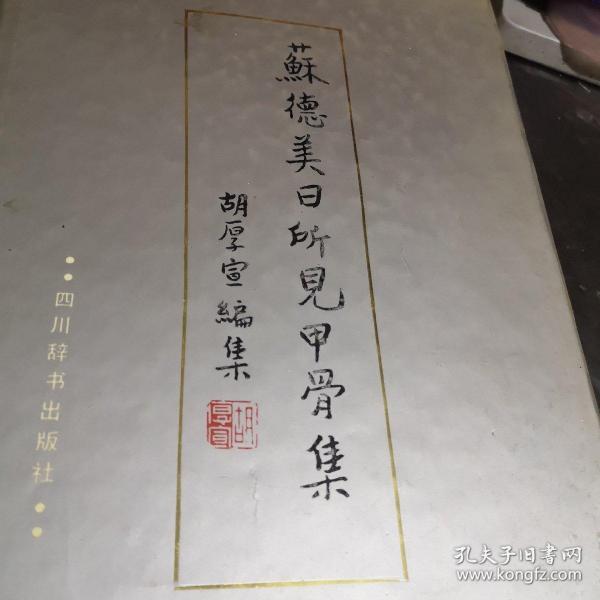 蘇德美日所見甲骨集
胡厚宣編集
胡厚宣
四川辞书出版社
孔夫子旧书网
www.kongfz.com